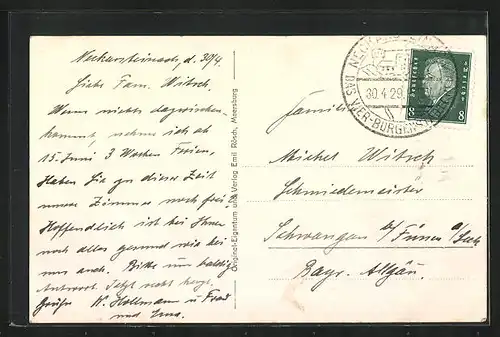 Neckarsteinach, d. 30/4.
Liebe Fam. Witsch.
Wenn nichts dazwischen
kommt, nehme ich ab
15. Juni 3 Wochen Ferien,
Haben Sie zu dieser Zeit
unser Zimmer noch frei?
Hoffendlich ist bei Ihnen
noch alles gesund wie bei
uns auch. Bitte um baldige
Antwort. Jetzt recht herzl.
Grüße W. Hollmann u. Frau
und
Original-Eigentum und Verlag Emil Rösch, Meersburg
30.4.29
DAS VIER-BURGEN
Deutsches Reich
8 8
Familie
Michel Witsch
Schmiedemeister
Schwangau b/ Füssen a/Lech
Bayr. Allgäu.